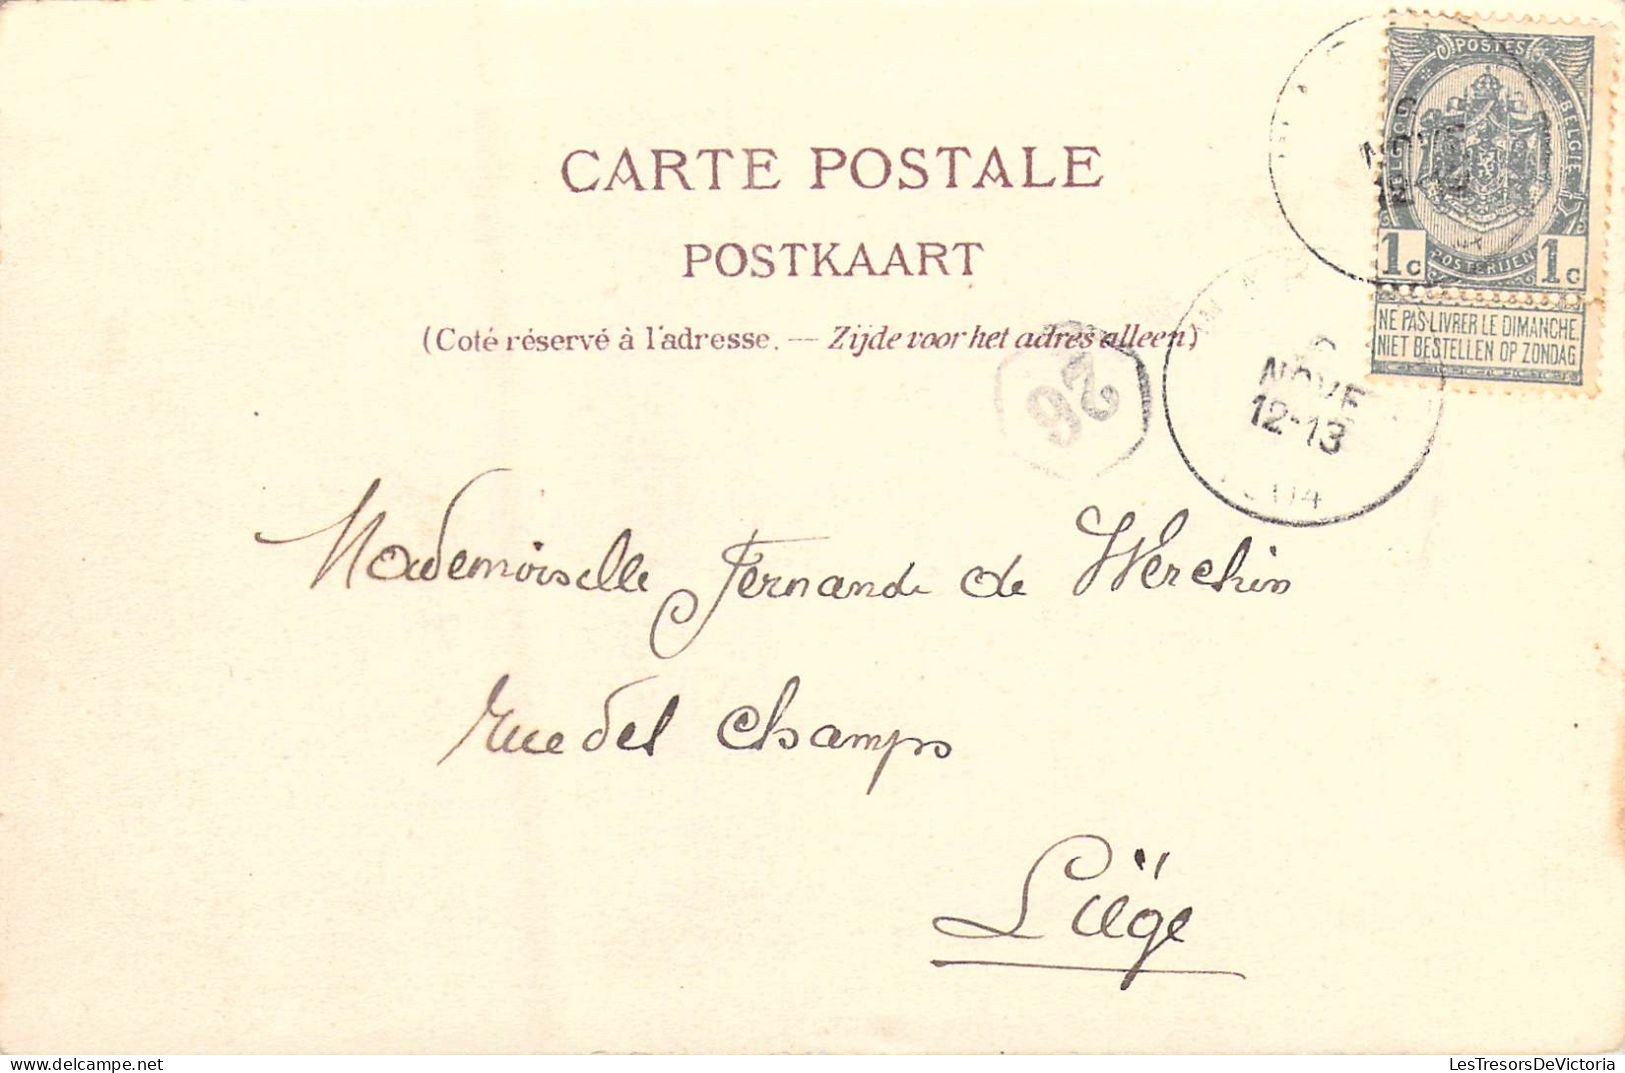 CARTE POSTALE
POSTKAART
(Coté réservé à l'adresse. — Zijde voor het adres alleen)
POSTES
BELGIQUE
BELGIË
1c POSTERIJEN 1c
NE PAS LIVRER LE DIMANCHE
NIET BESTELLEN OP ZONDAG
NOVE
12-13
26
Mademoiselle Fernande de Werchin
Rue des Champs
Liège
delcampe.net
LesTresorsDeVictoria